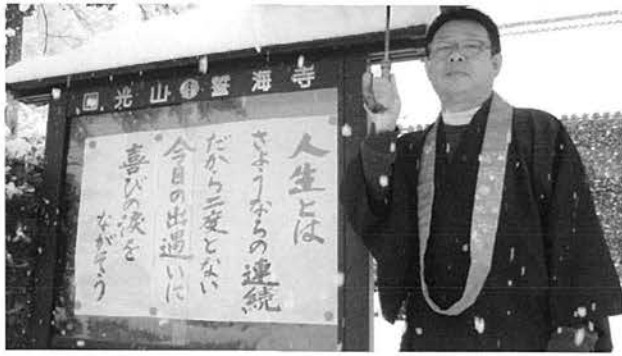 光山 誓海寺
人生とは
さようならの連続
だから二度とない
今日の出遇いに
喜びの涙を
ながそう